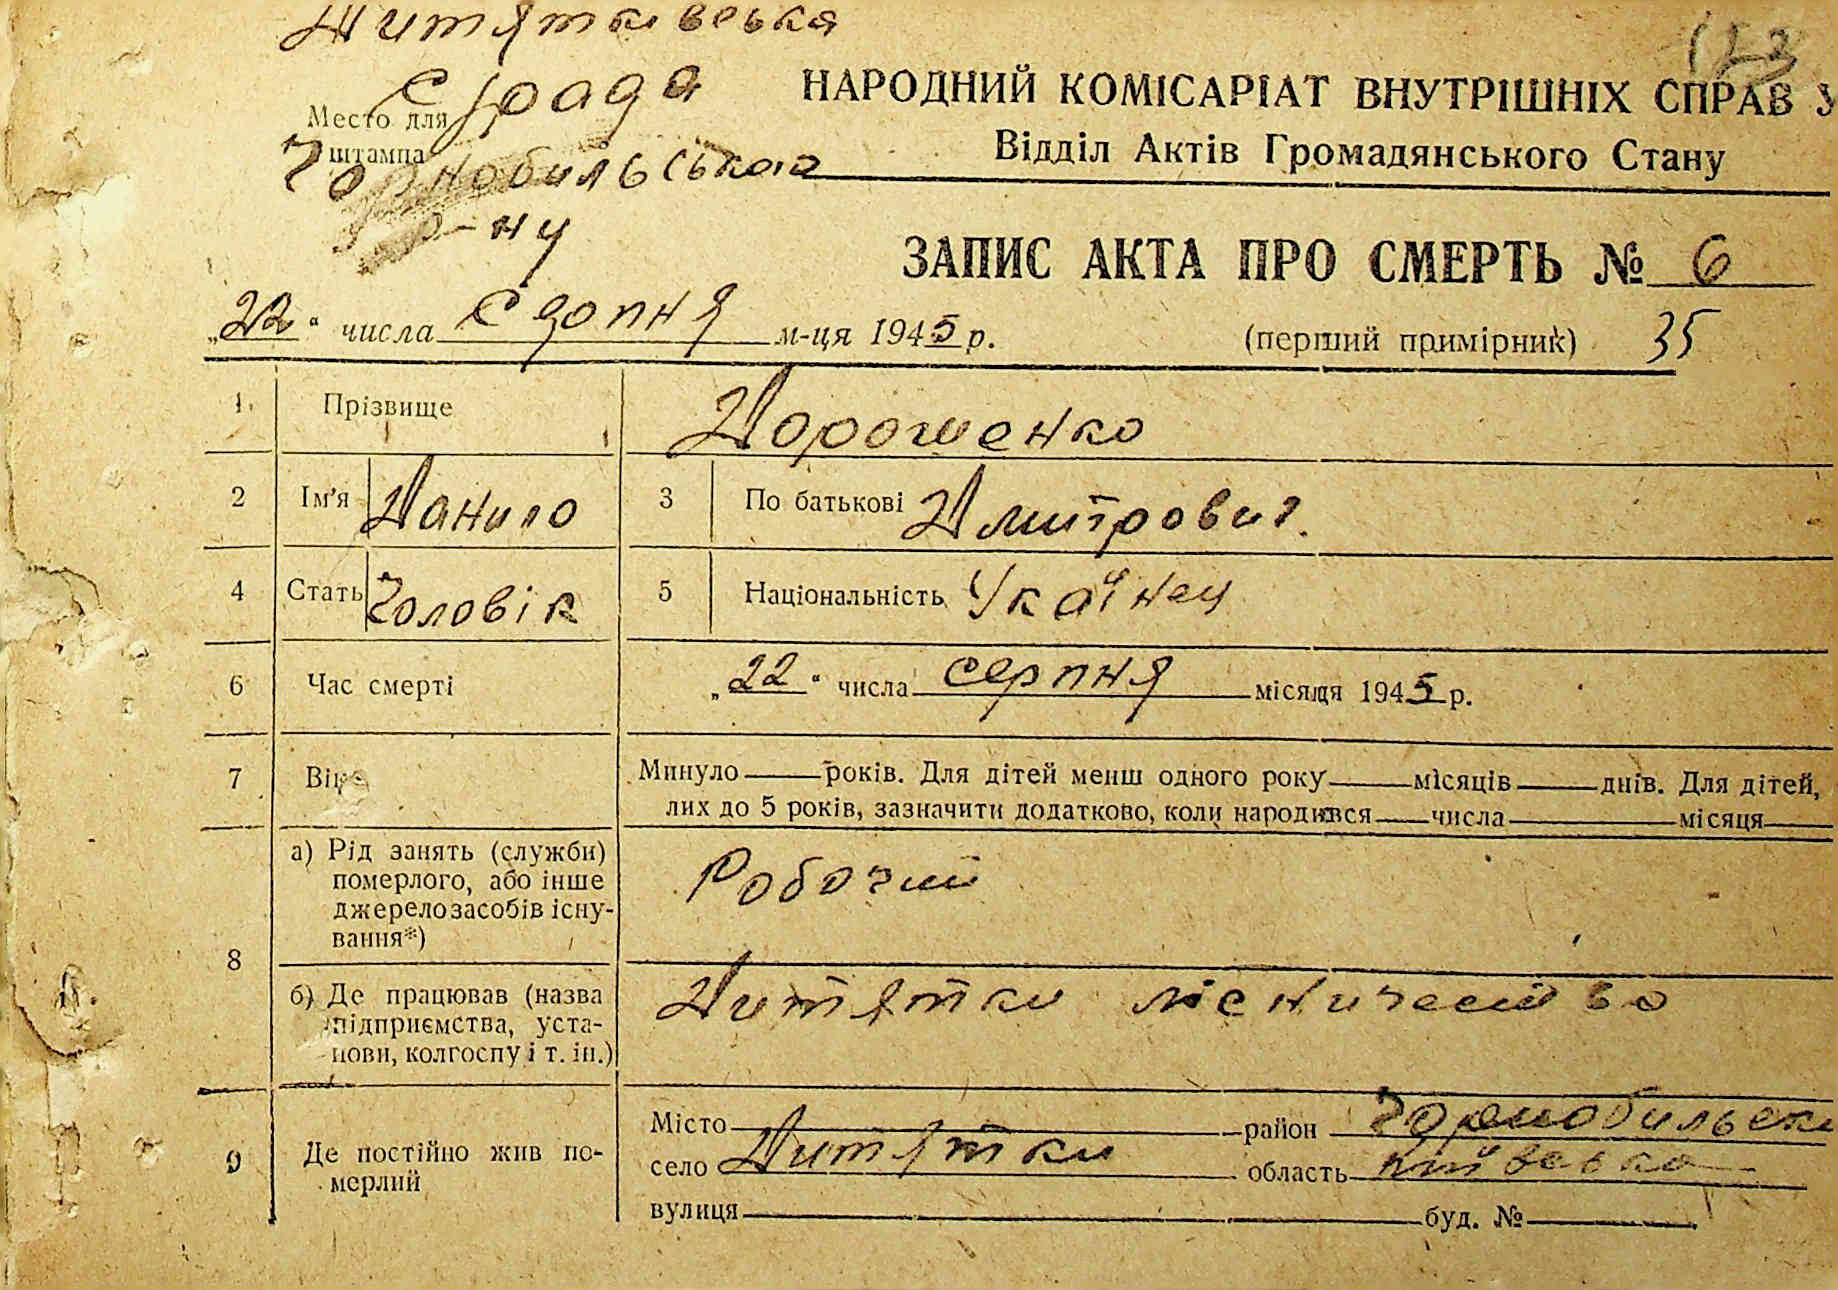 Дитятківська
с/рада
Место для
штампа
Чорнобильського
р-ну
НАРОДНИЙ КОМІСАРІАТ ВНУТРІШНІХ СПРАВ У
Відділ Актів Громадянського Стану
ЗАПИС АКТА ПРО СМЕРТЬ № 6
„22“ числа серпня м-ця 1945 р. (перший примірник) 35
1. Прізвище Дорошенко
2 Ім'я Данило 3 По батькові Дмитрович.
4 Стать Чоловік 5 Національність Украінец
6 Час смерті „22“ числа серпня місяця 1945 р.
7 Вік Минуло років. Для дітей менш одного року місяців днів. Для дітей,
лих до 5 років, зазначити додатково, коли народився числа місяця
8 а) Рід занять (служби)
померлого, або інше
джерело засобів існу-
вання*)
Робочий
б) Де працював (назва
підприємства, уста-
нови, колгоспу і т. ін.)
Дитятки лісничество
9 Де постійно жив по-
мерлий
Місто район Чорнобильськ
село Дитятки область Київська
вулиця буд. №